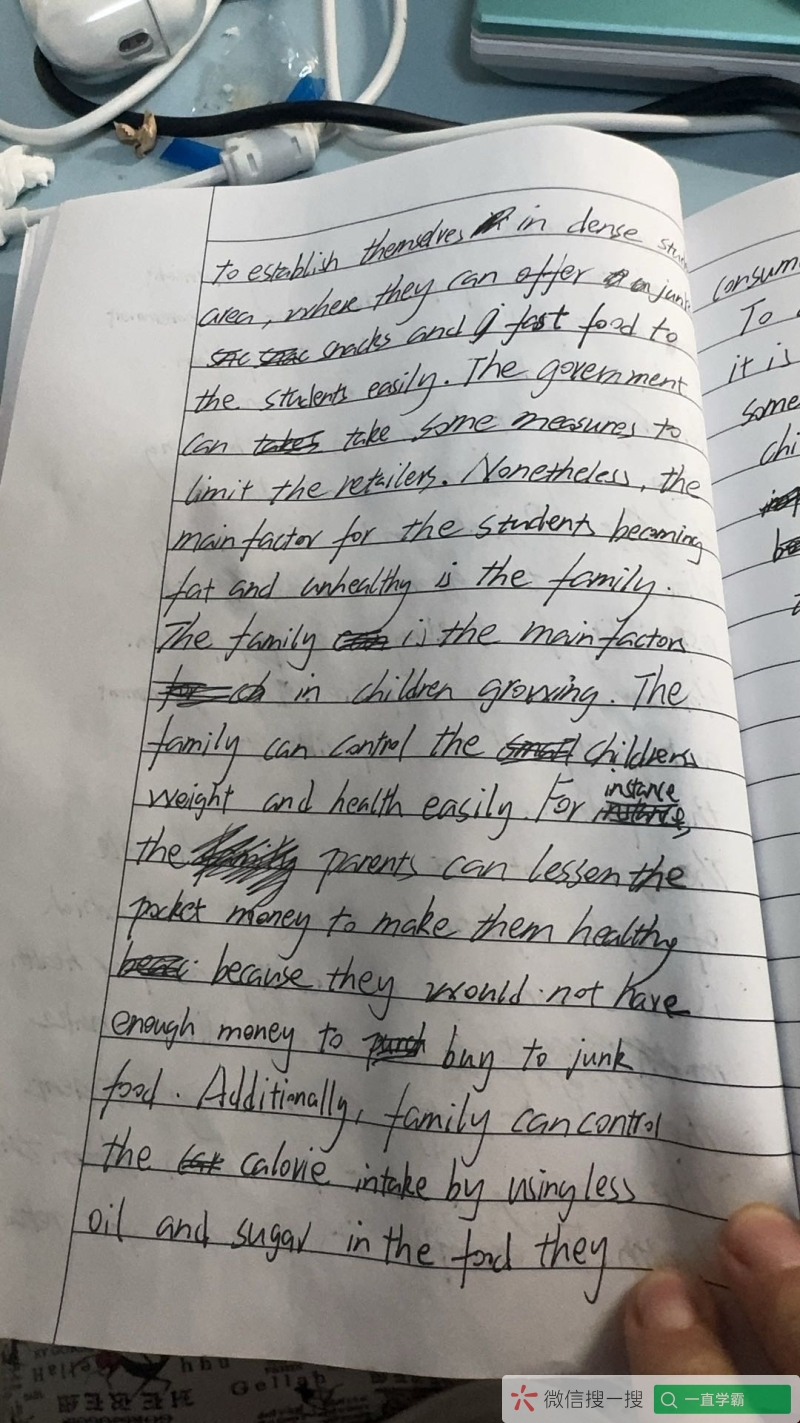 to establish themselves in dense
area, where they can offer junk
snacks and fast food to
the students easily. The government
can takes take some measures to
limit the retailers. Nonetheless, the
main factor for the students becoming
fat and unhealthy is the family.
The family is the main factors
in children growing. The
family can control the childrens
weight and health easily. For instance
the parents can lessen the
pocket money to make them healthy
because they would not have
enough money to buy to junk
food. Additionally, family can control
the calorie intake by using less
oil and sugar in the food they
To
it is
some
微信搜一搜
一直学霸